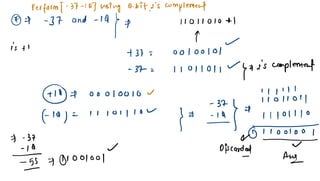 Perform[-37-18] using 8-bit 2's complement
⇒ -37 and -18 ⇒
11011010 +1
is +1
+37 = 00100101 ✓
-37 = 11011011 ✓
2's complement
+18 ⇒ 00010010 ✓
(-18) = 11101110 ✓
⇒ -37
-18
⇒
11011011
1110110
11001001
Discarded
Ans
⇒ -37
-18
-55 ⇒ 1001001 ✓